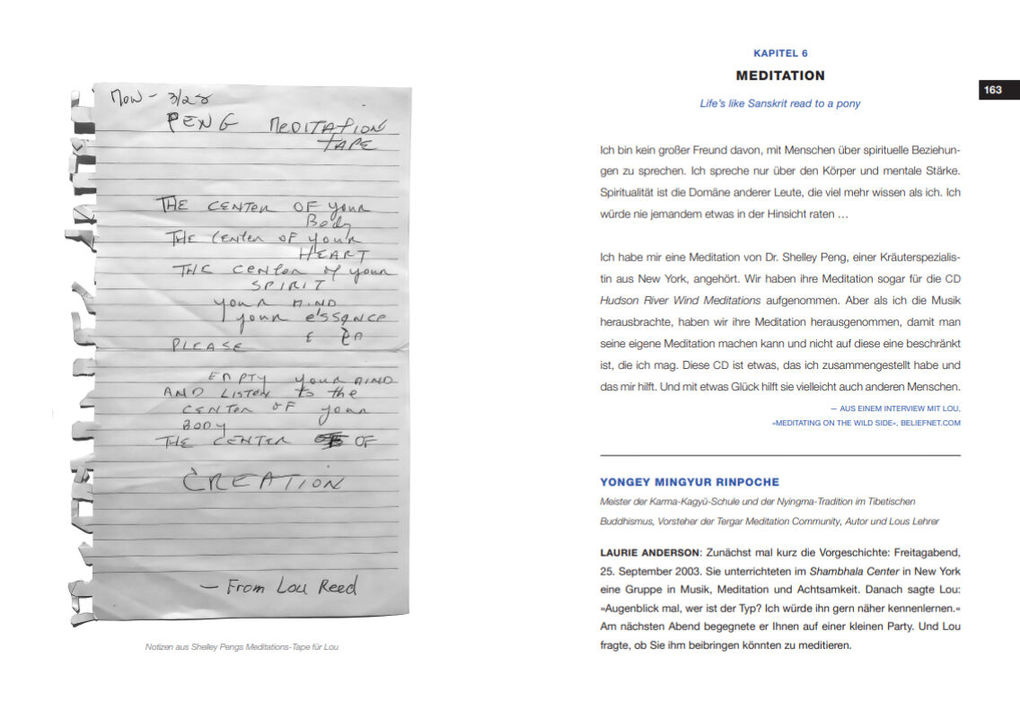 Mon - 3/28
PENG MEDITATION
TAPE
THE CENTER OF your
Body
THE CENTER OF your
HEART
THE CENTER of your
SPIRIT
your MIND
your essence
PLEASE
EMPTY your MIND
AND LISTEN to the
CENTER OF your
BODY
THE CENTER OF
CREATION
— From Lou Reed
Notizen aus Shelley Pengs Meditations-Tape für Lou
KAPITEL 6
MEDITATION
163
Life's like Sanskrit read to a pony
Ich bin kein großer Freund davon, mit Menschen über spirituelle Beziehun-
gen zu sprechen. Ich spreche nur über den Körper und mentale Stärke.
Spiritualität ist die Domäne anderer Leute, die viel mehr wissen als ich. Ich
würde nie jemandem etwas in der Hinsicht raten …
Ich habe mir eine Meditation von Dr. Shelley Peng, einer Kräuterspezialis-
tin aus New York, angehört. Wir haben ihre Meditation sogar für die CD
Hudson River Wind Meditations aufgenommen. Aber als ich die Musik
herausbrachte, haben wir ihre Meditation herausgenommen, damit man
seine eigene Meditation machen kann und nicht auf diese eine beschränkt
ist, die ich mag. Diese CD ist etwas, das ich zusammengestellt habe und
das mir hilft. Und mit etwas Glück hilft sie vielleicht auch anderen Menschen.
— AUS EINEM INTERVIEW MIT LOU,
»MEDITATING ON THE WILD SIDE«, BELIEFNET.COM
YONGEY MINGYUR RINPOCHE
Meister der Karma-Kagyü-Schule und der Nyingma-Tradition im Tibetischen
Buddhismus, Vorsteher der Tergar Meditation Community, Autor und Lous Lehrer
LAURIE ANDERSON: Zunächst mal kurz die Vorgeschichte: Freitagabend,
25. September 2003. Sie unterrichteten im Shambhala Center in New York
eine Gruppe in Musik, Meditation und Achtsamkeit. Danach sagte Lou:
»Augenblick mal, wer ist der Typ? Ich würde ihn gern näher kennenlernen.«
Am nächsten Abend begegnete er Ihnen auf einer kleinen Party. Und Lou
fragte, ob Sie ihm beibringen könnten zu meditieren.